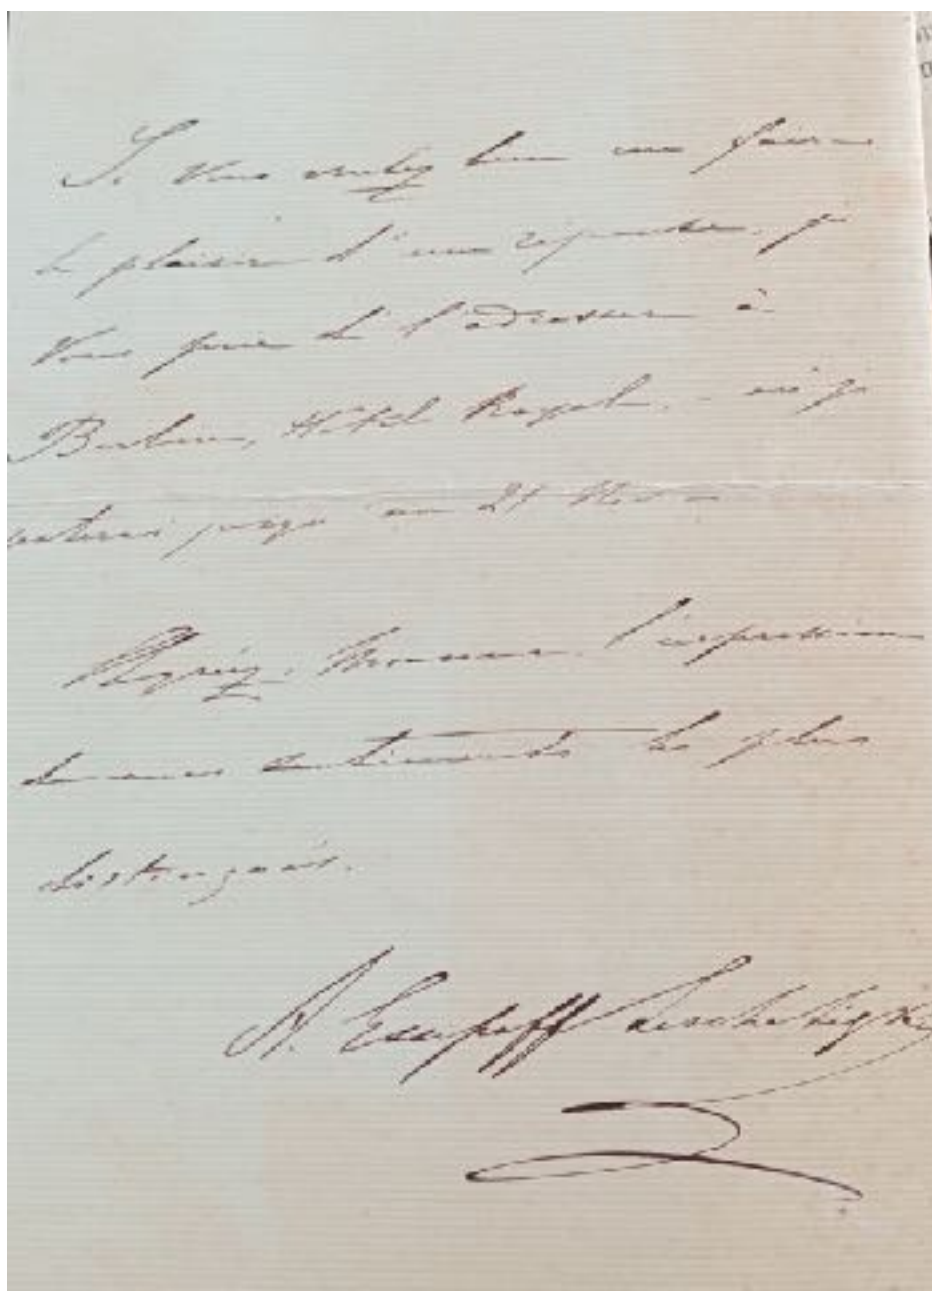 Si vous voulez bien me faire
le plaisir d'une réponse, je
vous prie de l'adresser à
Berlin, Hôtel Royal, – où je
resterai jusqu'au 21 Nov.
Agréez, Monsieur, l'expression
de mes sentiments les plus
distingués.
A. Essipoff Leschetizky